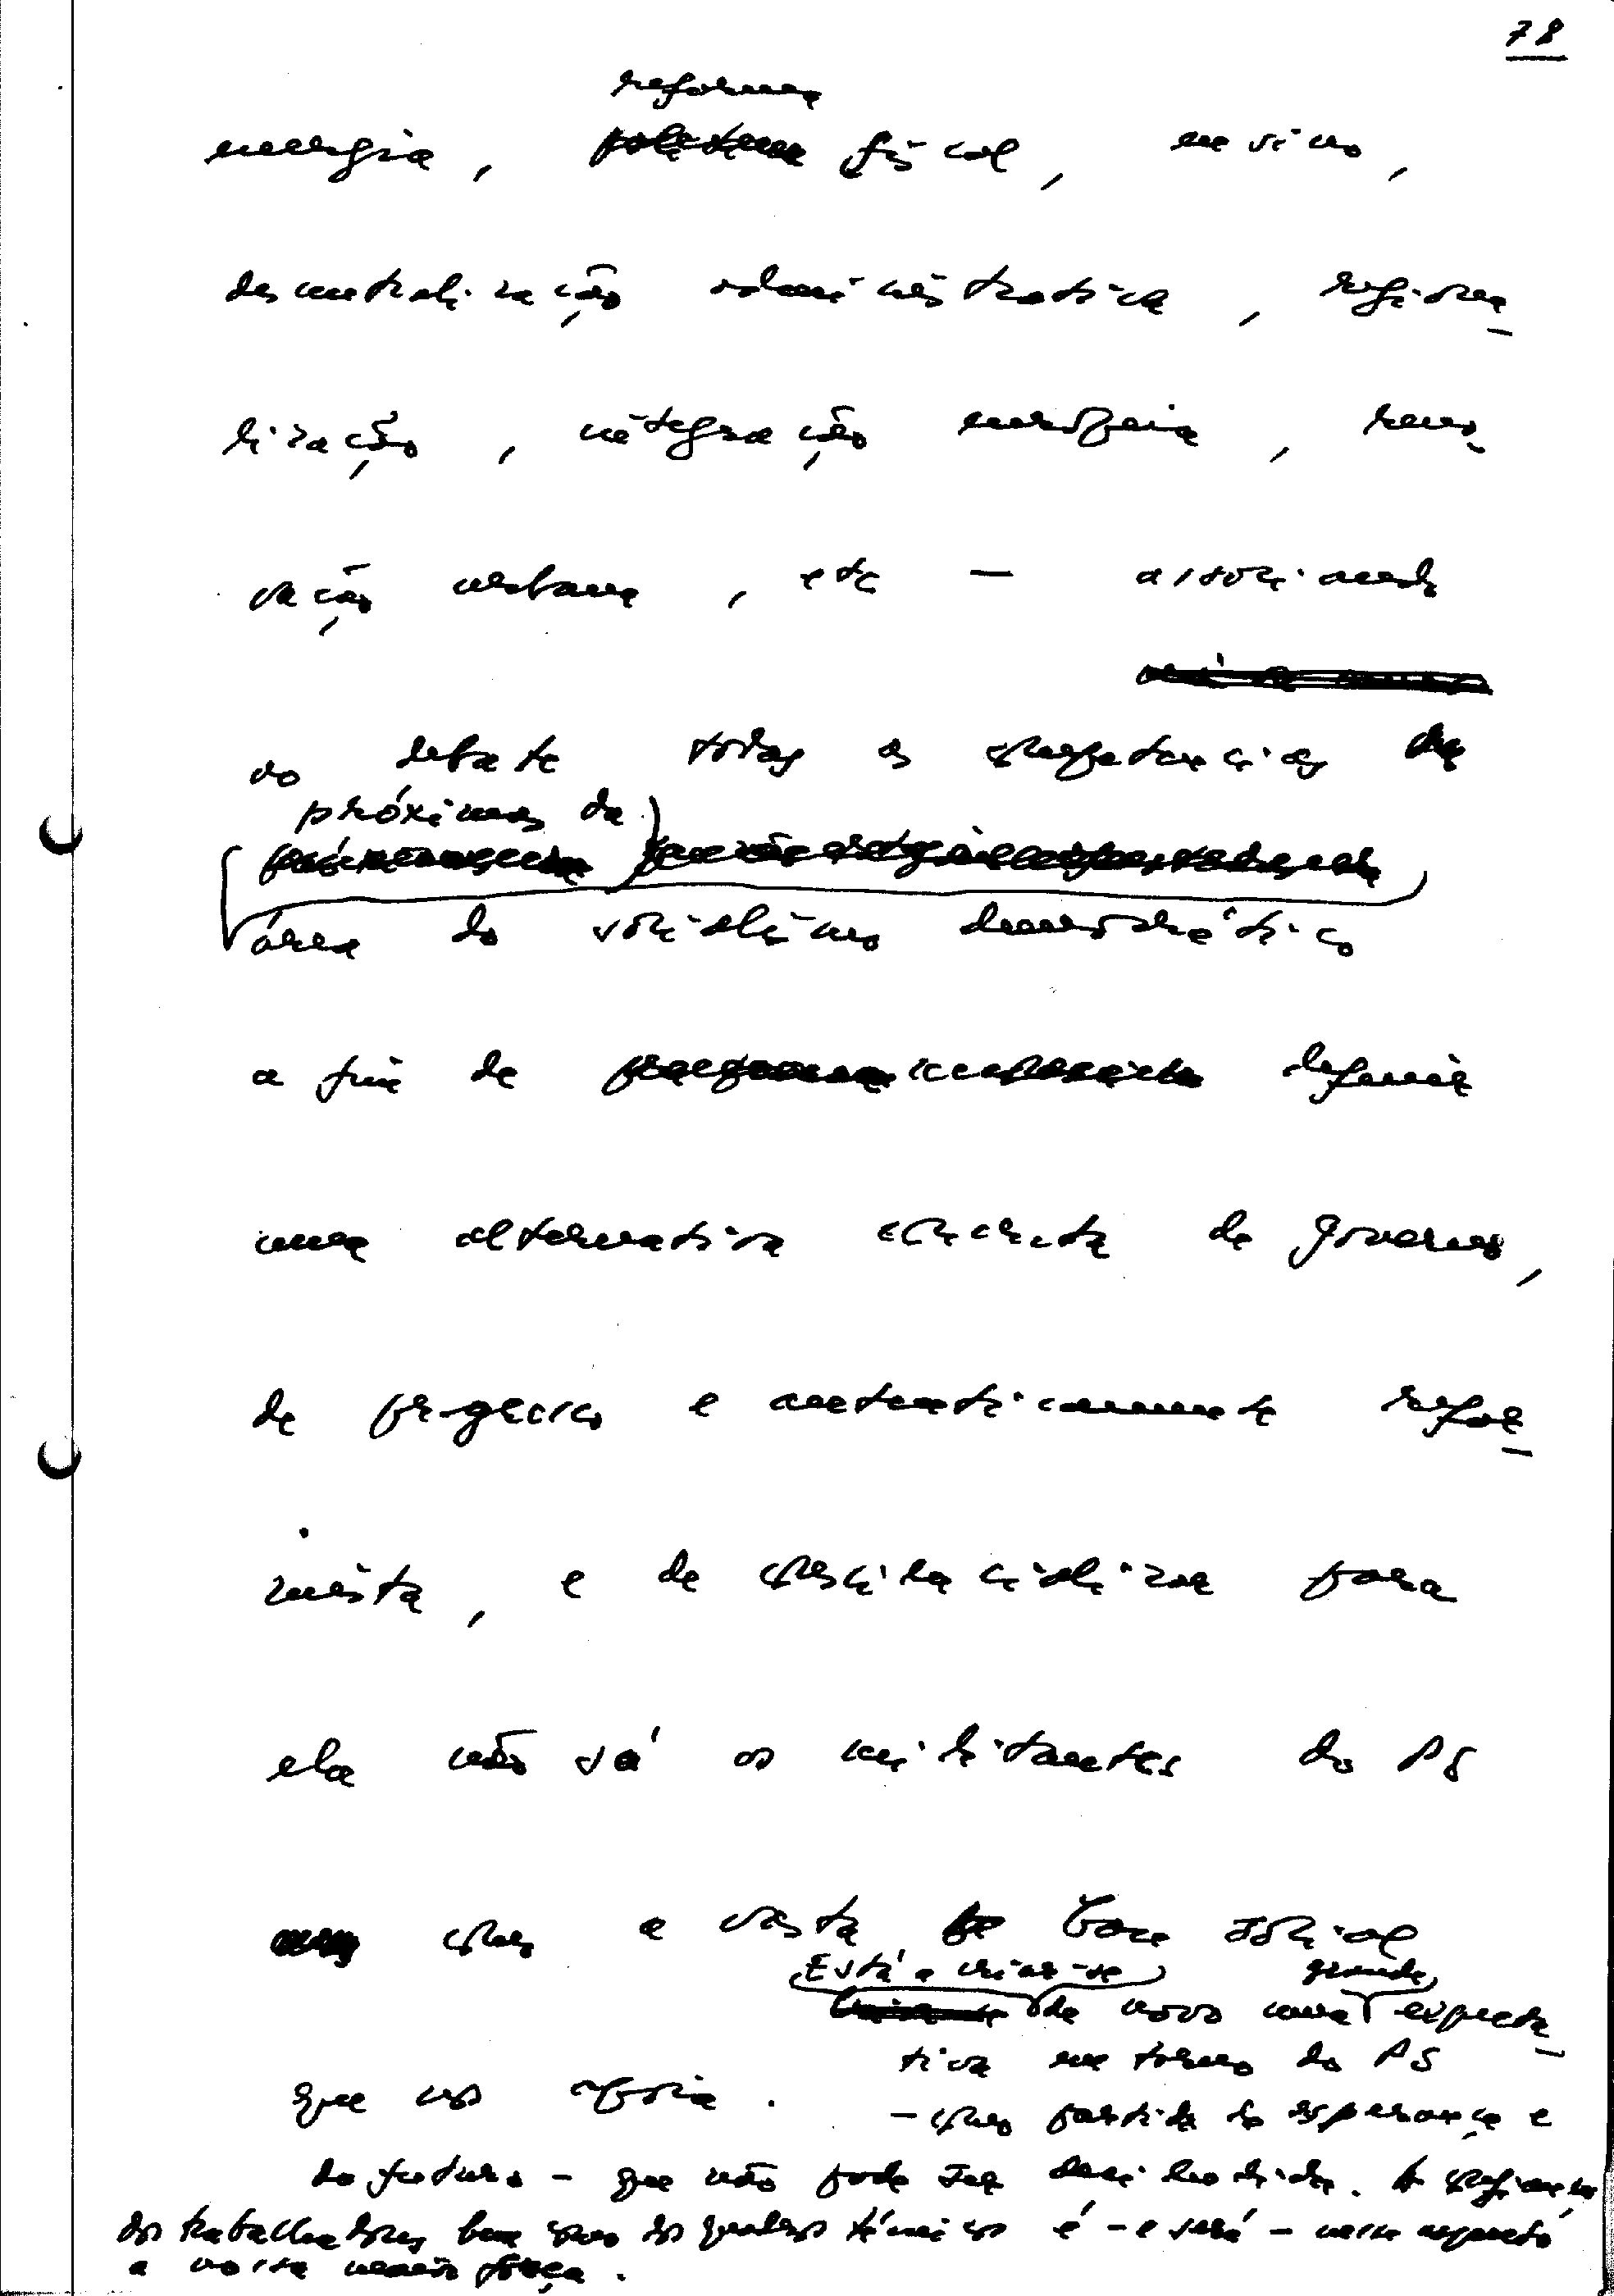 78
reforma
energia, fiscal, ensino,
descentralização administrativa, regiona-
lização, integração europeia, reno-
vação urbana, etc — associando
ao debate todas as competências
próximas da
área do socialismo democrático
a fim de definir
uma alternativa concreta de governo,
de progresso e autenticamente refor-
mista, e de consciencializar para
ela não só os militantes do PS
como a vasta base social
Está a criar-se grande
de novo uma expecta-
tiva em torno do PS
que nos apoia.
— como partido da esperança e
do futuro — que não pode ser desiludida. A confiança
dos trabalhadores bem como dos quadros técnicos é — e será — nesse aspecto
a nossa maior força.